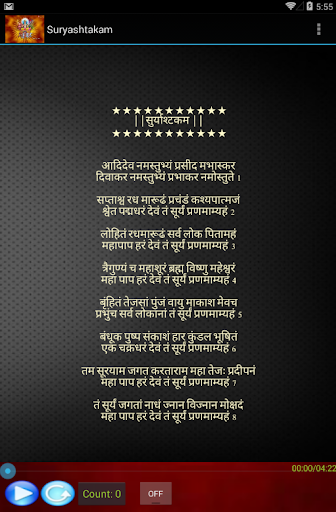 5:55
Suryashtakam
★★★★★★★★★★★
||सुर्याश्टकम ||
★★★★★★★★★★★
आदिदेव नमस्तुभ्यं प्रसीद मभास्कर
दिवाकर नमस्तुभ्यं प्रभाकर नमोस्तुते 1
सप्ताश्व रध मारूढं प्रचंडं कश्यपात्मजं
श्वेत पद्मधरं देवं तं सूर्यं प्रणमाम्यहं 2
लोहितं रधमारूढं सर्व लोक पितामहं
महापाप हरं देवं तं सूर्यं प्रणमाम्यहं 3
त्रैगुण्यं च महाशूरं ब्रह्म विष्णु महेश्वरं
महा पाप हरं देवं तं सूर्यं प्रणमाम्यहं 4
बृंहितं तेजसां पुंजं वायु माकाश मेवच
प्रभुंच सर्व लोकानां तं सूर्यं प्रणमाम्यहं 5
बंधूक पुष्प संकाशं हार कुंडल भूषितं
एक चक्रधरं देवं तं सूर्यं प्रणमाम्यहं 6
तम सूरयाम जगत करताराम महा तेजः प्रदीपनं
महा पाप हरं देवं तं सूर्यं प्रणमाम्यहं 7
तं सूर्यं जगतां नाधं ज्नान विज्नान मोक्षदं
महा पाप हरं देवं तं सूर्यं प्रणमाम्यहं 8
00:00/04:22
Count: 0
OFF